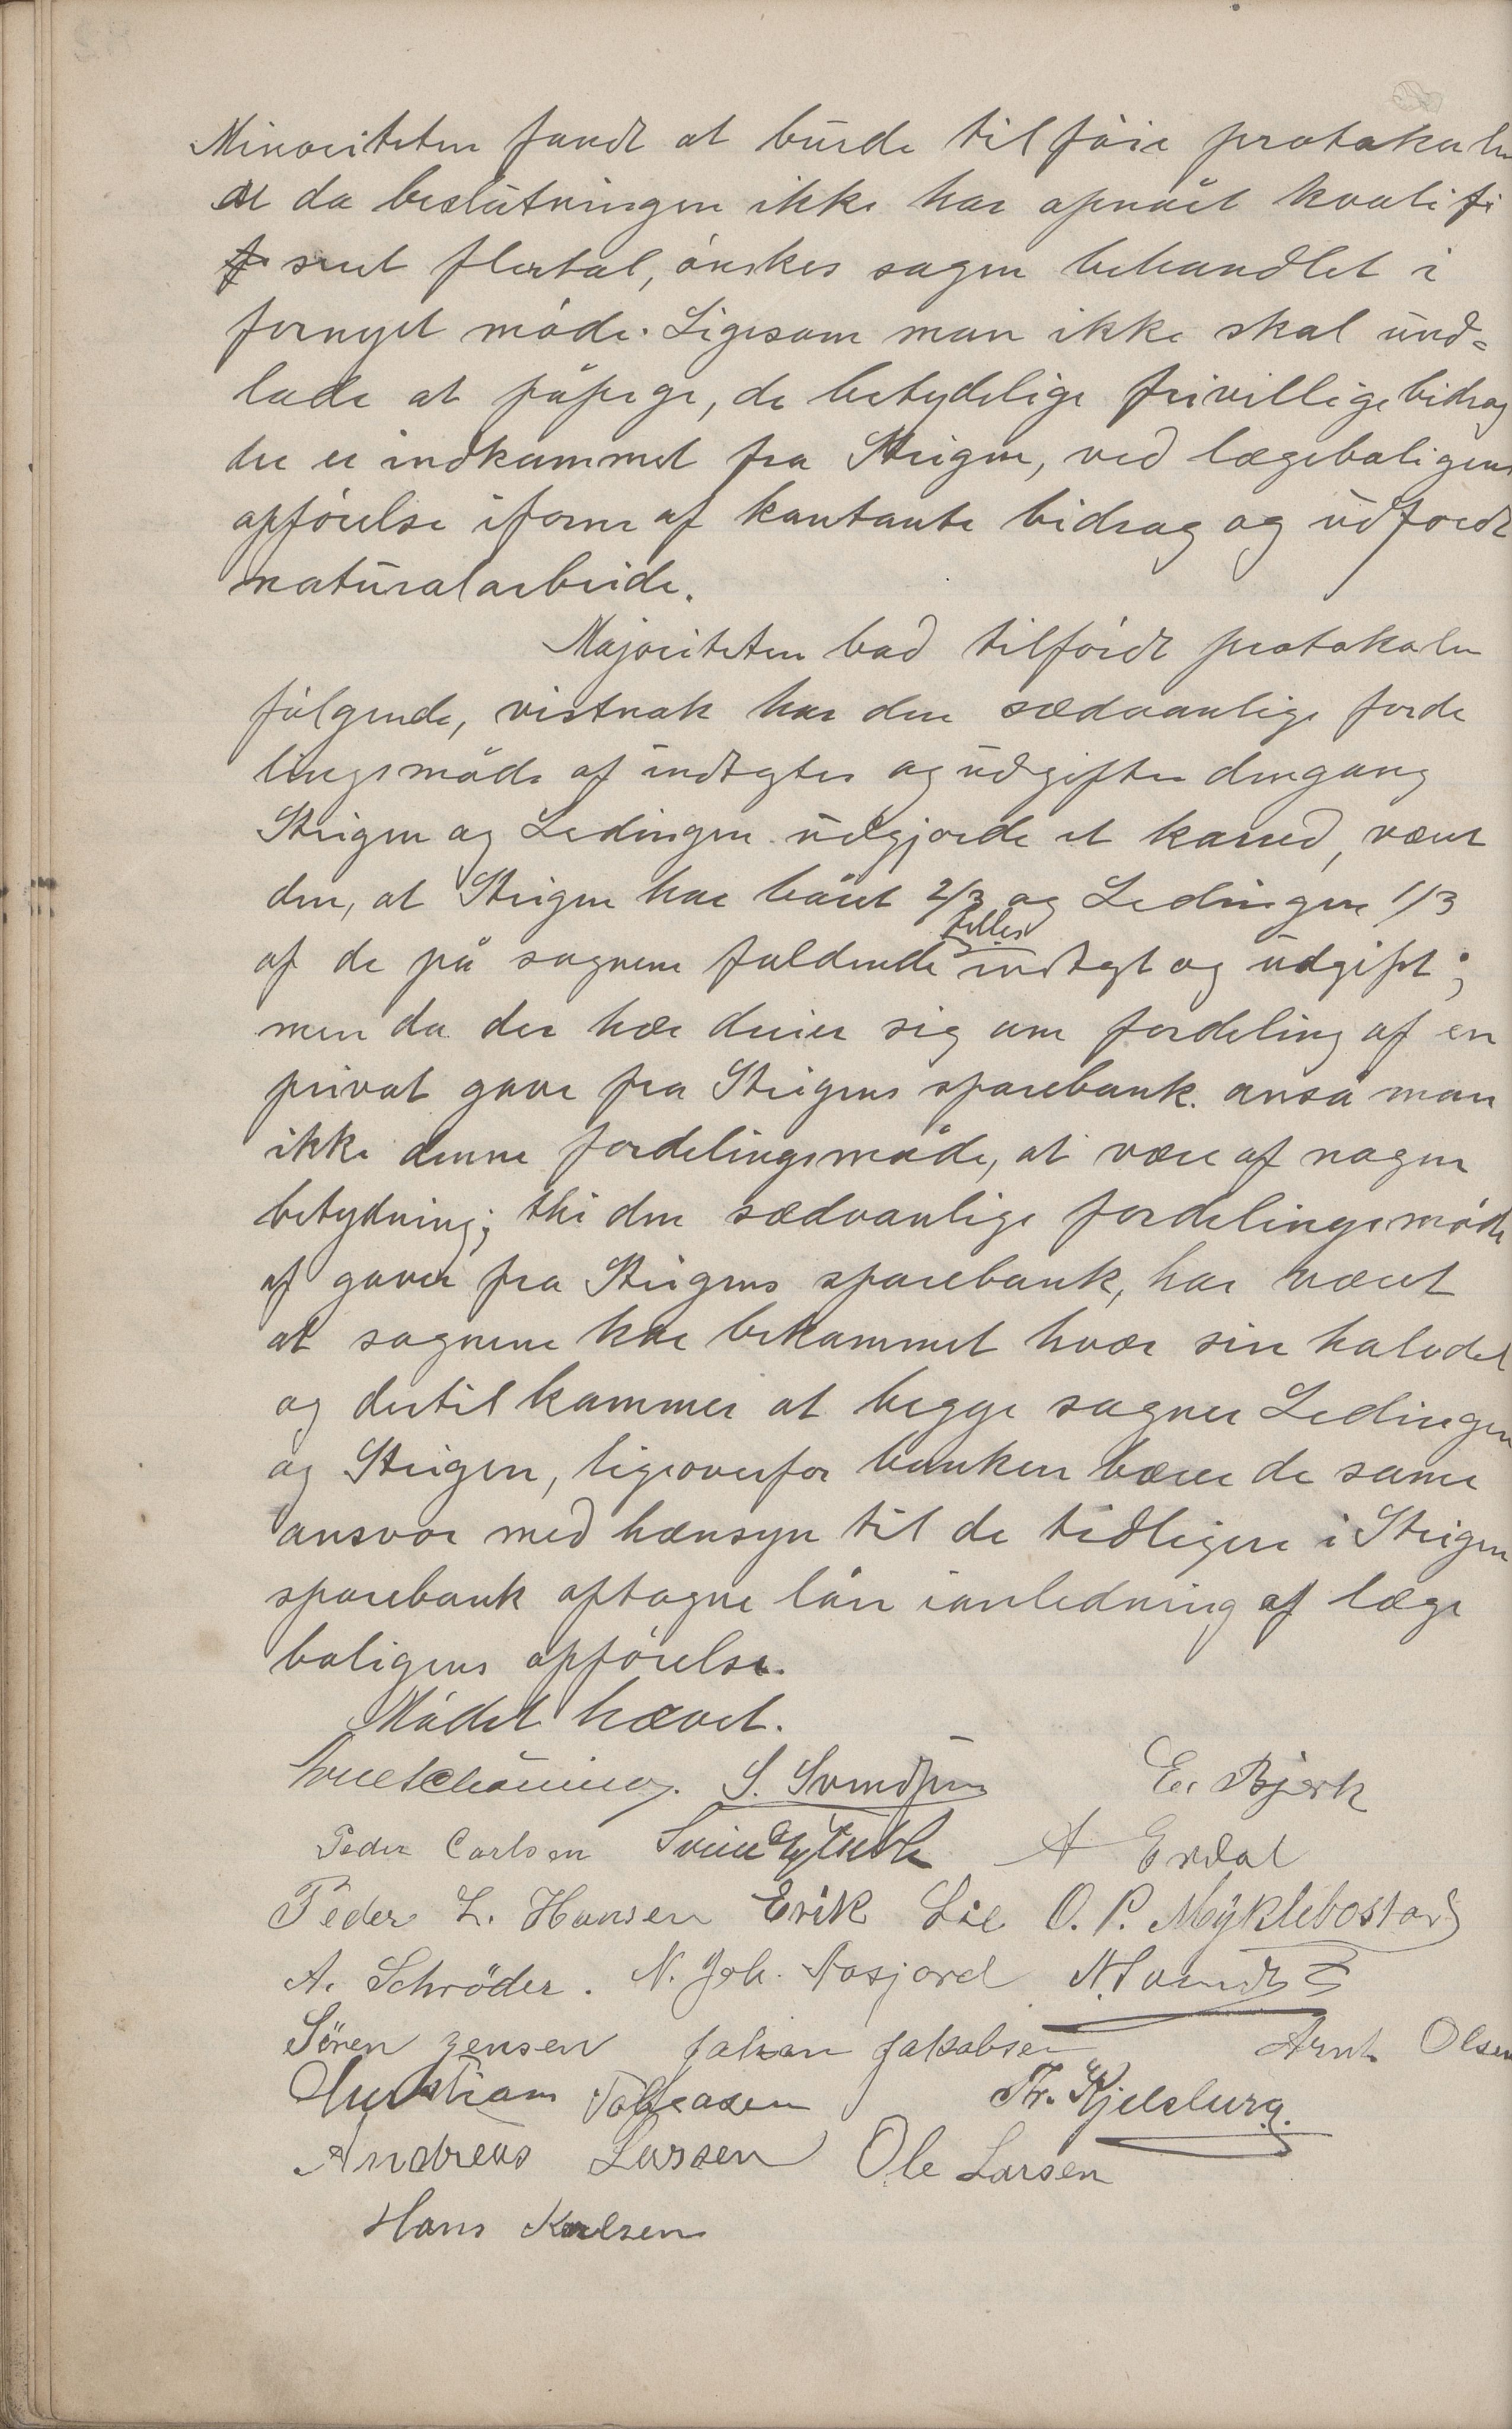 Minoriteten fandt at burde tilføie protokolen
at da beslutningen ikke har opnået kvalifi
seret flertal, ønskes sagen behandlet i
fornyet møde. Ligesom man ikke skal und=
lade at påpege, de betydelige frivillige bidrag
der er indkommet fra Steigen, ved lægeboligens
opførelse iform af kontante bidrag og udførdt
naturalarbeide.
Majoriteten bad tilførdt protokolen
følgende, vistnok har den sædvanlige forde
lingsmåde af indtgter og udgifter dengang
Steigen og Ledingen udgjorde et herred, været
den, at Steigen har båret 2/3 og Ledingen 1/3
af de på sognene faldende fælles indtgt og udgift;
men da der her dreier sig om fordeling af en
privat gave fra Steigens sparebank. anså man
ikke denne fordelingsmåde, at være af nogen
betydning; thi den sædvanlige fordelingsmåde
af gaver fra Steigens sparebank, har været
at sognene har bekommet hver sin halvdel
og dertil kommer at begge sogner Ledingen
og Steigen, ligeoverfor banken bærer de samme
ansvar med hensyn til de tidligere i Steigen
sparebank optagne lån ianledning af læge
boligens opførelse.
Mødet hævet.
S. Svendsen E. Bjerk
Peder Carlsen A Erdal
Peder L. Hansen Erik Lie O. P. Myklebostad
A. Schrøder. N. Joh. Aasjord
Sören Jensen Johan Jakobsen Arnt Olsen
Christian Tobiasen Fr. Kjelsberg.
Andreas Larsen Ole Larsen
Hans Karlsen